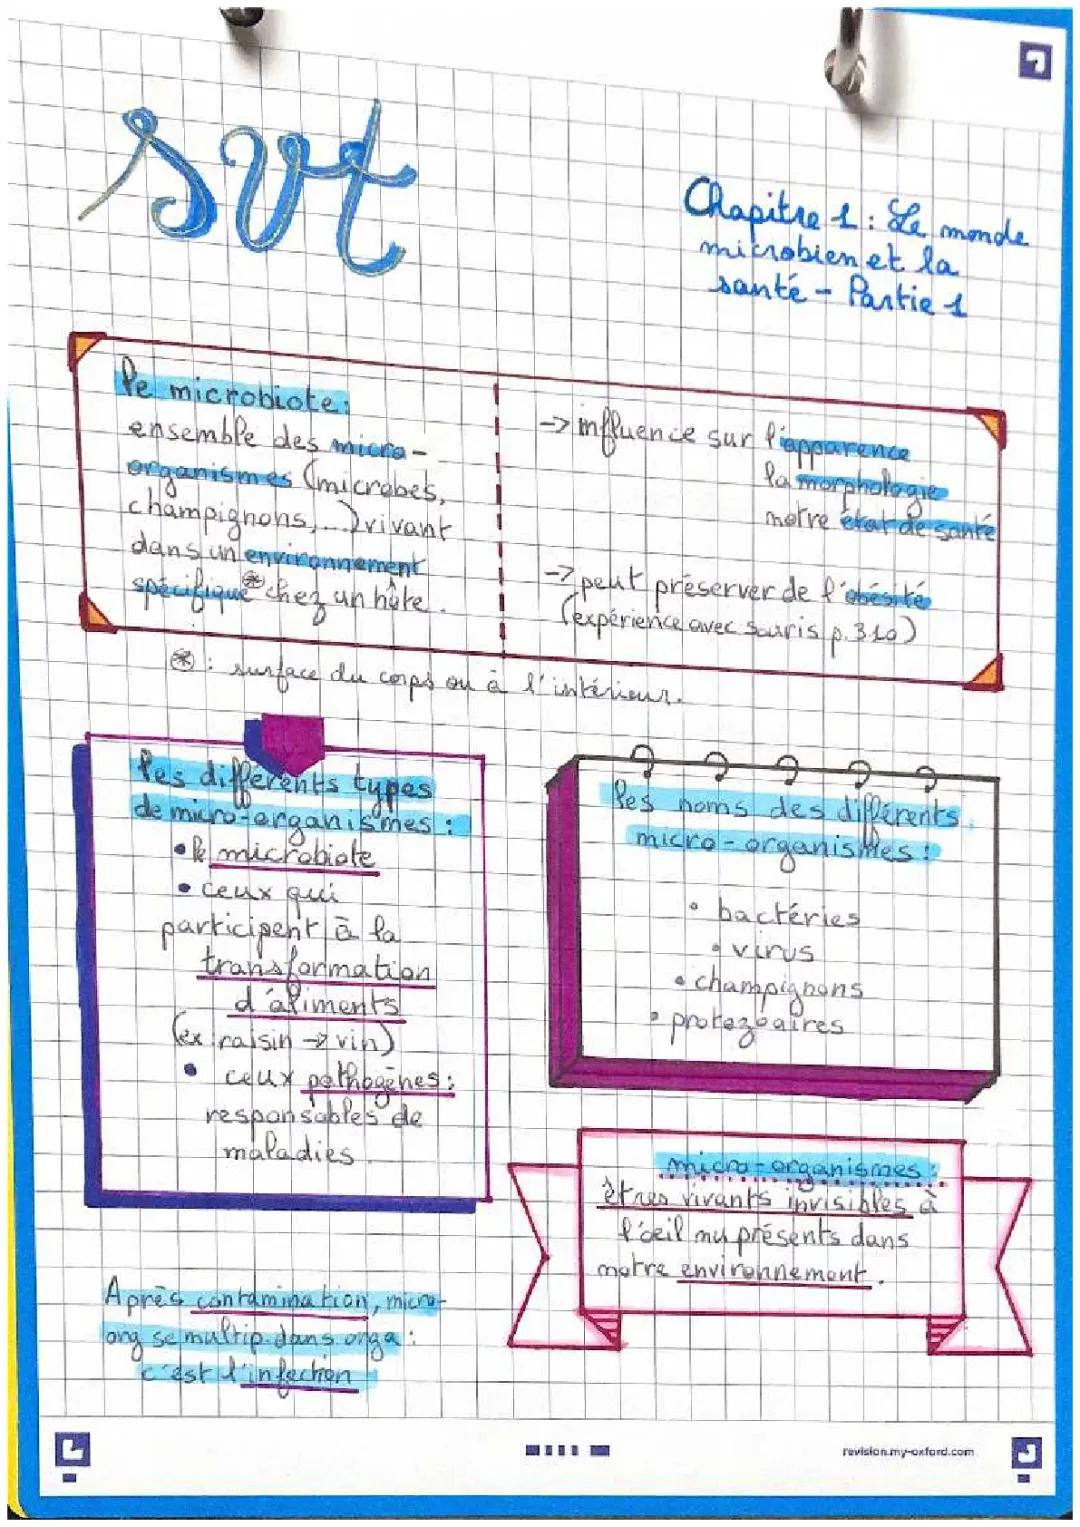 svt
Chapitre 1 : Le monde
microbien et la
santé - Partie 1
Le microbiote:
ensemble des micro-
organismes (microbes,
champignons,...) vivant
dans un environnement
spécifique ⊛ chez un hôte.
-> influence sur l'apparence
la morphologie
notre état de santé
-> peut préserver de l'obésité
(expérience avec souris p.310)
⊛ : surface du corps ou à l'intérieur.
Les différents types
de micro-organismes :
• le microbiote
• ceux qui
participent à la
transformation
d'aliments
(ex: raisin -> vin)
• ceux pathogènes :
responsables de
maladies.
Les noms des différents
micro-organismes :
• bactéries
• virus
• champignons
• protozoaires
micro-organismes :
êtres vivants invisibles à
l'oeil nu présents dans
notre environnement.
Après contamination, micro-
org se multip. dans orga :
c'est l'infection
revision.my-oxford.com